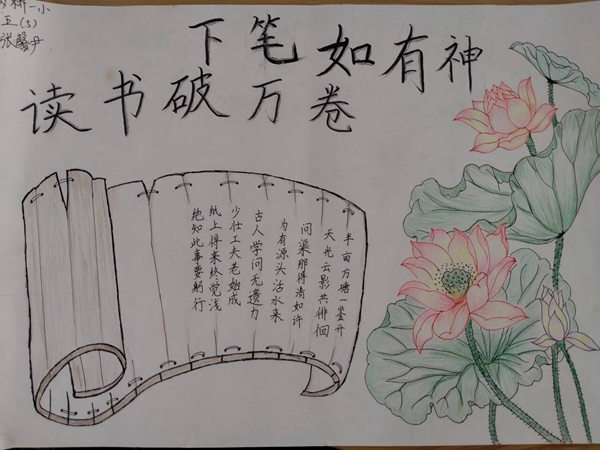 桥一小
五
张馨尹
读书破万卷
下笔如有神
半亩方塘一鉴开
天光云影共徘徊
问渠那得清如许
为有源头活水来
古人学问无遗力
少壮工夫老始成
纸上得来终觉浅
绝知此事要躬行